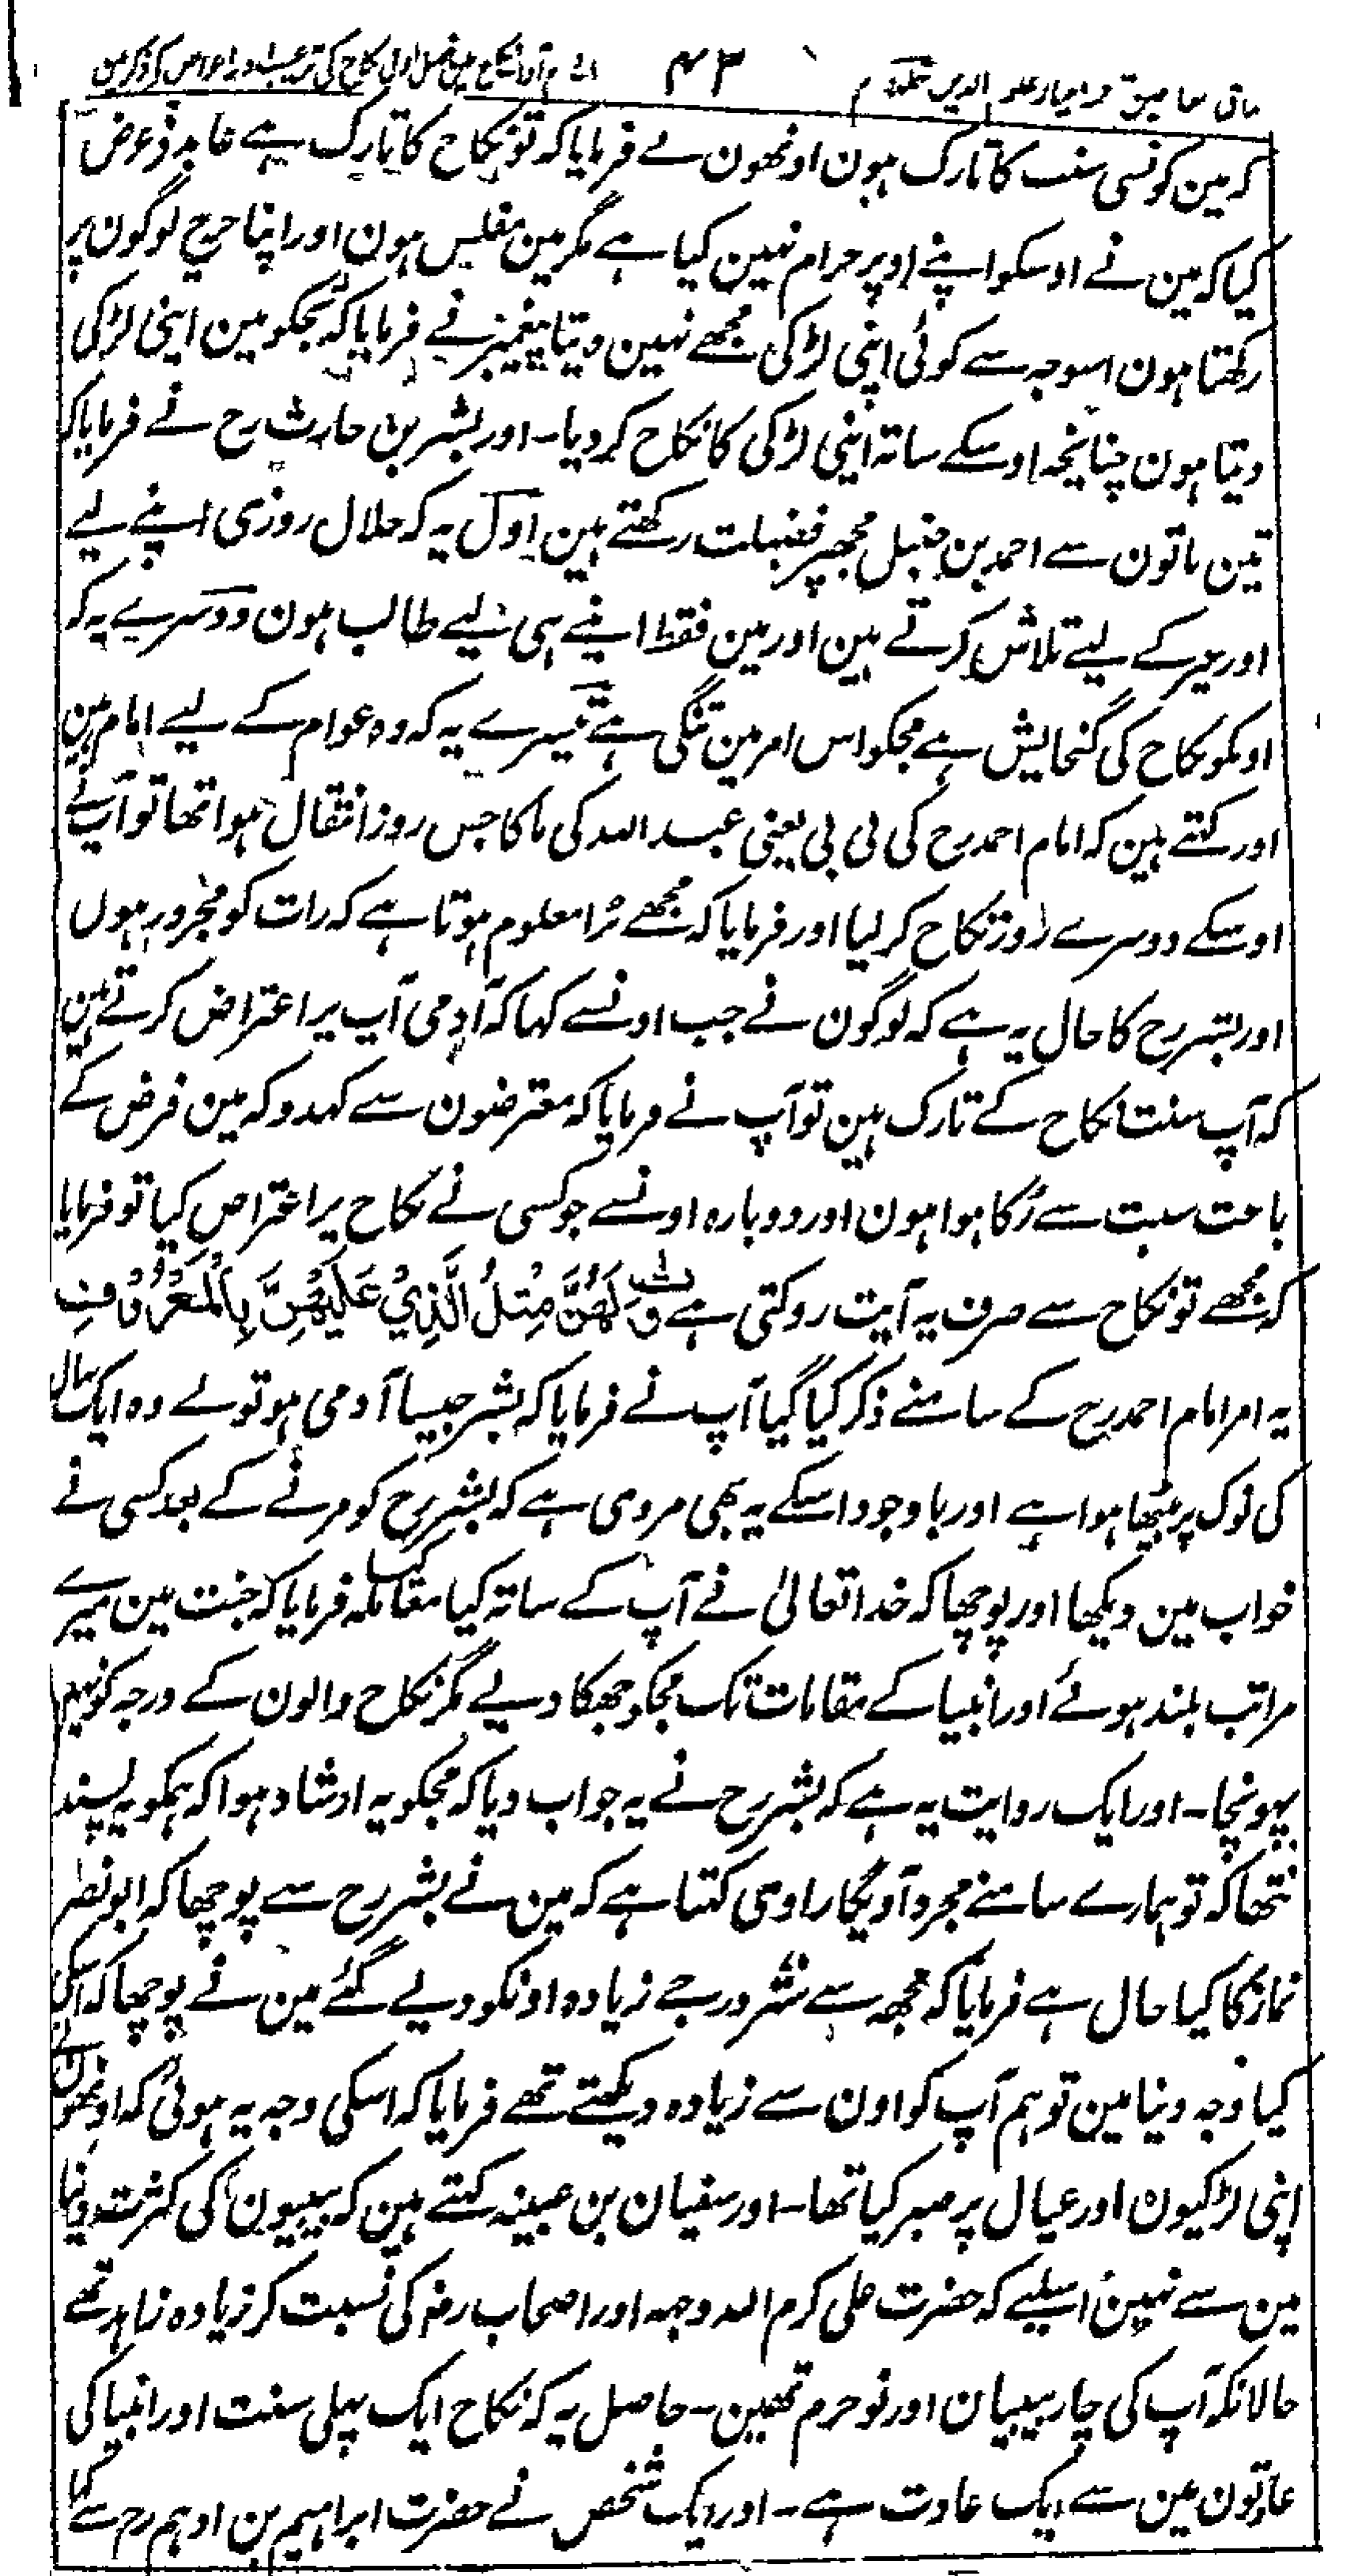 مذاق العارفین ترجمہ احیاء علوم الدین جلد دوم ۴۳ باب ۲ آداب نکاح میں فصل اول نکاح کی ترغیب اور اعراض کے ذکر مین
کہ مین کونسی سنت کا تارک ہون اونھون نے فرمایا کہ تو نکاح کا تارک ہے عابد نے عرض
کیا کہ مین نے اوسکو اپنے اوپر حرام نہین کیا ہے مگر مین مفلس ہون اور اپنا خرچ لوگون پر
رکھتا ہون اسوجہ سے کوئی اپنی لڑکی مجھے نہین دیتا پیغمبر نے فرمایا کہ تجکو مین اپنی لڑکی
دیتا ہون چنانچہ اوسکے ساتہ اپنی لڑکی کا نکاح کر دیا۔ اور بشر بن حارث رح نے فرمایا کہ
تین باتون سے احمد بن حنبل مجھپر فضیلت رکھتے ہین اول یہ کہ حلال روزی اپنے لیے
اور غیر کے لیے تلاش کرتے ہین اور مین فقط اپنے ہی لیے طالب ہون دوسرے یہ کہ
اونکو نکاح کی گنجایش ہے مجکو اس امر مین تنگی ہے تیسرے یہ کہ وہ عوام کے لیے امام ہین
اور کہتے ہین کہ امام احمد رح کی بی بی یعنی عبد اللہ کی ما کا جس روز انتقال ہوا تھا تو آپ نے
اوسکے دوسرے روز نکاح کر لیا اور فرمایا کہ مجھے برا معلوم ہوتا ہے کہ رات کو مجرد رہوں
اور بشر رح کا حال یہ ہے کہ لوگون نے جب اونسے کہا کہ آدمی آپ پر اعتراض کرتے ہین
کہ آپ سنت نکاح کے تارک ہین تو آپ نے فرمایا کہ معترضون سے کہدو کہ مین فرض کے
باعث سنت سے رکا ہوا ہون اور دوبارہ اونسے جو کسی نے نکاح پر اعتراض کیا تو فرمایا
کہ مجھے تو نکاح سے صرف یہ آیت روکتی ہے وَلَهُنَّ مِثْلُ الَّذِيْ عَلَيْهِنَّ بِالْمَعْرُوْفِ
یہ امر امام احمد رح کے سامنے ذکر کیا گیا آپ نے فرمایا کہ بشر جیسا آدمی ہو تو لے وہ ایک بھال
کی نوک پر بیٹھا ہوا ہے اور باوجود اسکے یہ بھی مروی ہے کہ بشر رح کو مرنے کے بعد کسی نے
خواب مین دیکھا اور پوچھا کہ خدا تعالیٰ نے آپ کے ساتہ کیا معاملہ کیا فرمایا کہ جنت مین میرے
مراتب بلند ہوئے اور انبیا کے مقامات تک مجکو جھکا دیے مگر نکاح والون کے درجہ کو نہین
پہونچا۔ اور ایک روایت یہ ہے کہ بشر رح نے یہ جواب دیا کہ مجکو یہ ارشاد ہوا کہ ہمکو یہ پسند
نتھا کہ تو ہمارے سامنے مجرد آویگا راوی کہتا ہے کہ مین نے بشر رح سے پوچھا کہ ابو نصر
تمار کا کیا حال ہے فرمایا کہ مجھ سے ستر درجے زیادہ اونکو دیے گئے مین نے پوچھا کہ اسکی
کیا وجہ دنیا مین تو ہم آپ کو اون سے زیادہ دیکھتے تھے فرمایا کہ اسکی وجہ یہ ہوئی کہ اونھون نے
اپنی لڑکیون اور عیال پر صبر کیا تھا۔ اور سفیان بن عیینہ کہتے ہین کہ بیبیون کی کثرت دنیا
مین سے نہین اسلیے کہ حضرت علی کرم اللہ وجہہ اور اصحاب رضہ کی نسبت کر زیادہ زاہد تھے
حالانکہ آپ کی چار بیبیان اور نو حرم تھین۔ حاصل یہ کہ نکاح ایک پہلی سنت اور انبیا کی
عادتون مین سے ایک عادت ہے۔ اور ایک شخص نے حضرت ابراہیم بن ادہم رح سے کہا